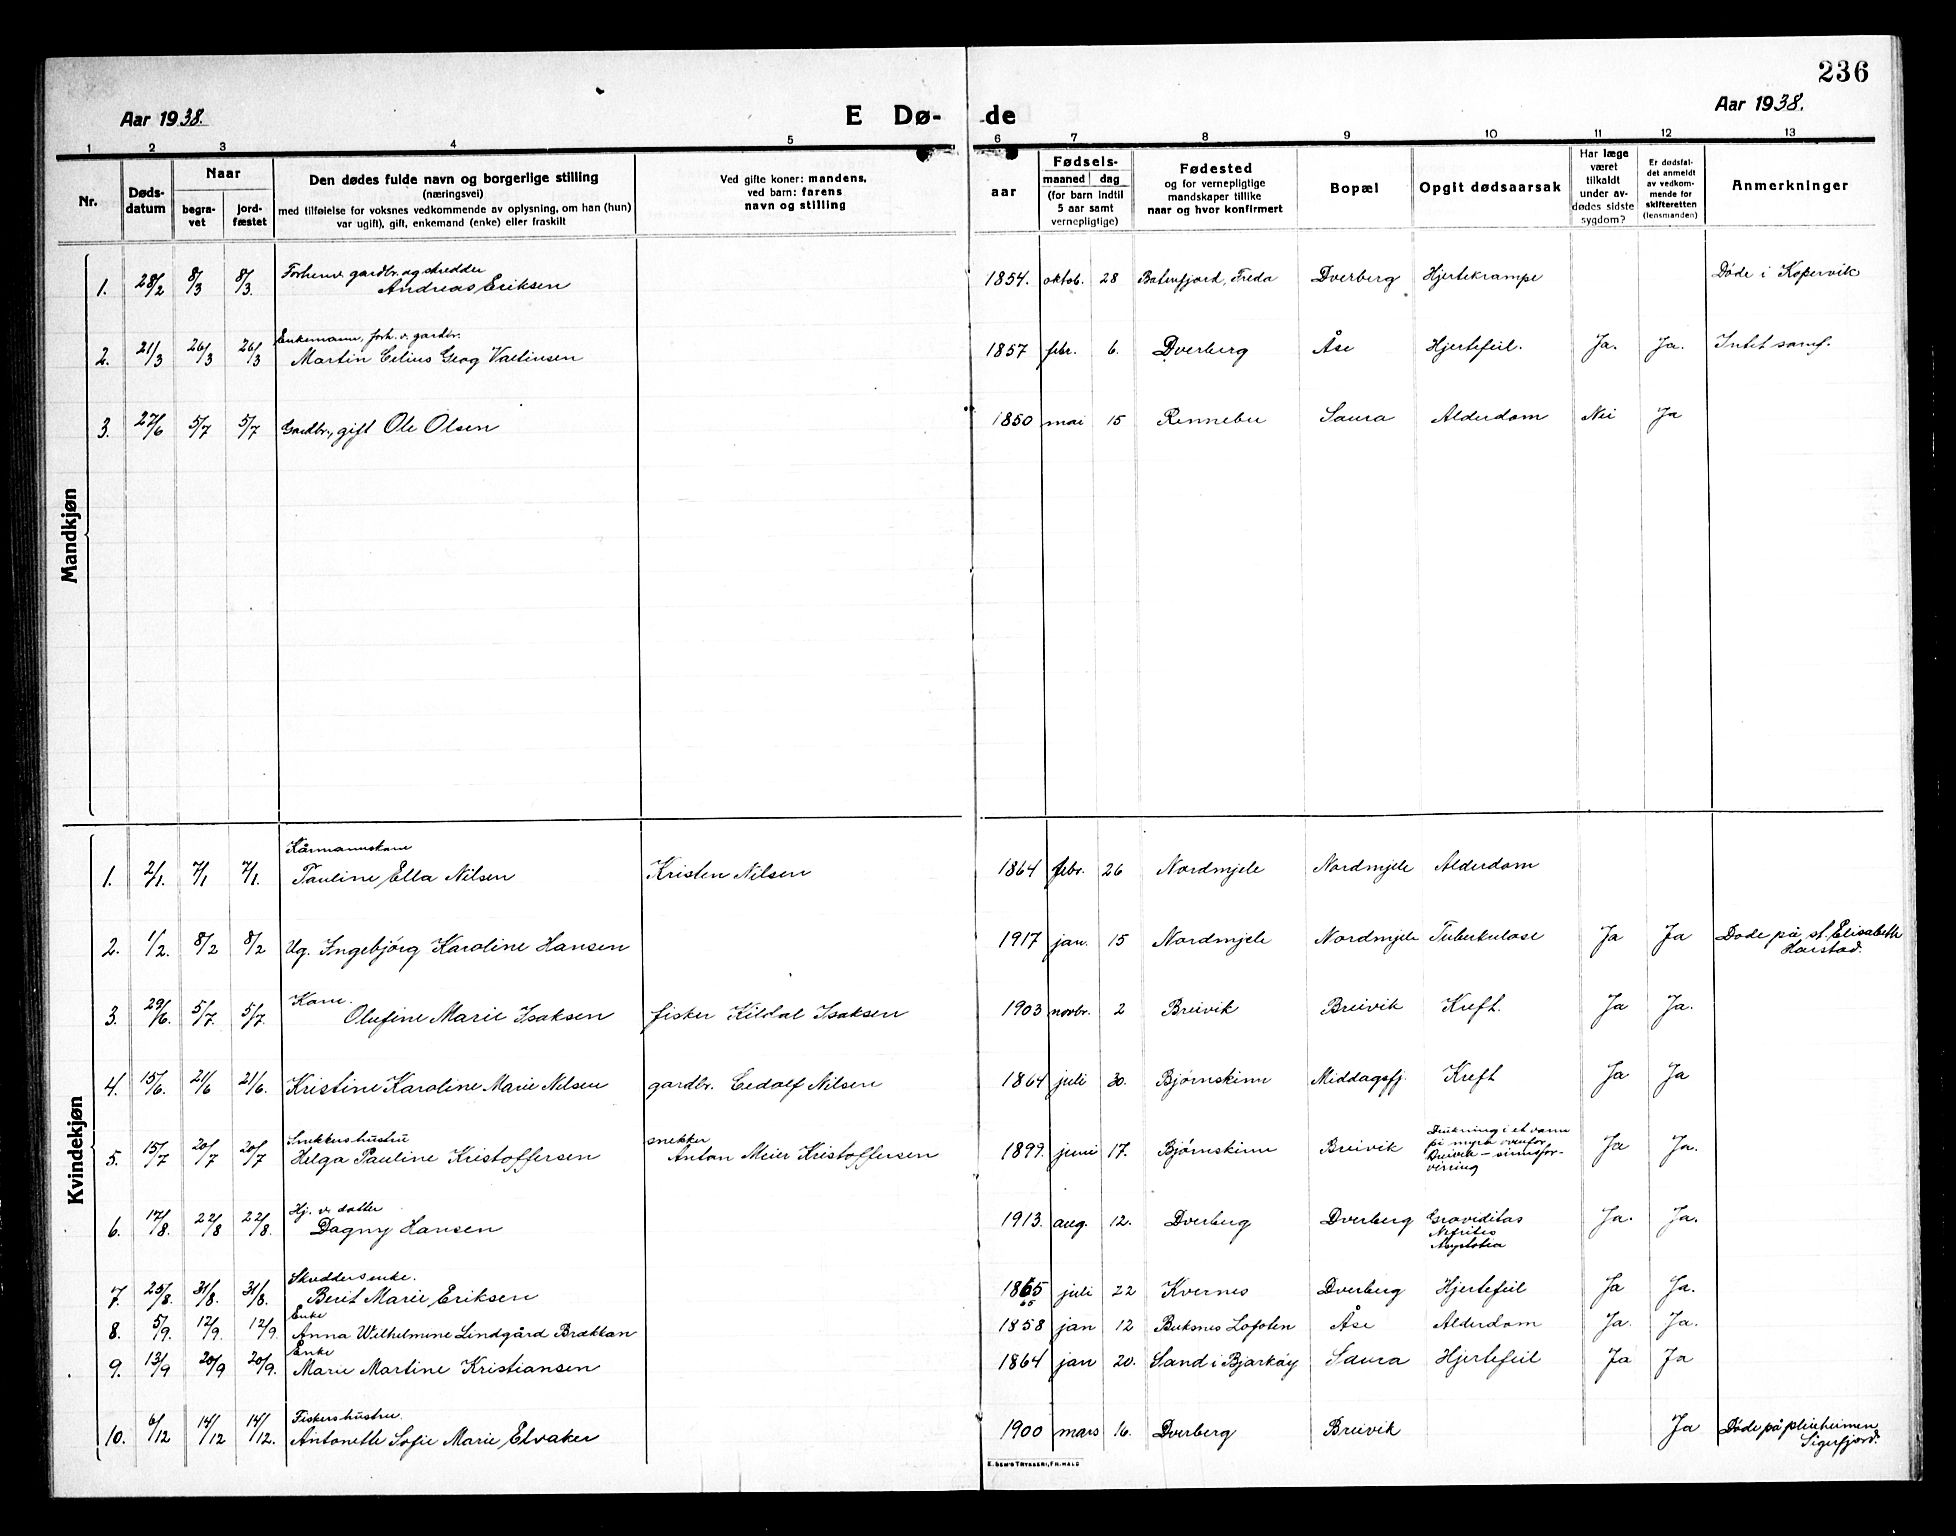 236
Aar 1938.
E Dø-
de
Aar 1938.
1 2 3 4 5 6 7 8 9 10 11 12 13
Nr.
Døds-
datum
Naar
begra-
vet
jord-
fæstet
Den dødes fulde navn og borgerlige stilling
(næringsvei)
med tilføielse for voksnes vedkommende av oplysning, om han (hun)
var ugift), gift, enkemand (enke) eller fraskilt
Ved gifte koner: mandens,
ved barn: farens
navn og stilling
aar
Fødsels-
maaned dag
(for barn indtil
5 aar samt
vernepligtige)
Fødested
og for vernepligtige
mandskaper tillike
naar og hvor konfirmert
Bopæl
Opgit dødsaarsak
Har læge
været
tilkaldt
under av-
dødes sidste
sygdom?
Er dødsfal-
det anmeldt
av vedkom-
mende for
skifteretten
(lensmanden)
Anmerkninger
Mandkjøn
Forhenv. gardbr. og skredder
1. 28/2 8/3 8/3. Andreas Eriksen 1854. oktob. 28 Batnfjord, Freda Dverberg Hjertekrampe Døde i Kopervik
Enkemann, forh. v. gardbr.
2. 21/3 26/3 26/3 Martin Celius Georg Valtinsen 1857 febr. 6. Dverberg Åse Hjertefeil. Ja. Ja. Intet samf.
3. 27/6 5/7 5/7 Gardbr., gift Ole Olsen 1850 mai 15 Rennebu Saura Alderdom Nei Ja
Kvindekjøn
Kårmannskone
1. 2/1. 7/1 7/1. Pauline Ella Nilsen Kristen Nilsen 1864 febr. 26 Nordmjele Nordmjele Alderdom
2. 1/2. 8/2 8/2 Ug. Ingebjørg Karoline Hansen 1917 jan. 15 Nordmjele Nordmjele Tuberkulose Ja Ja Døde på st. Elisabeth
Harstad.
Kone.
3. 29/6. 5/7. 5/7. Olufine Marie Isaksen fisker Kildal Isaksen 1903 novbr. 2 Breivik Breivik Kreft. Ja Ja.
4. 15/6. 21/6 21/6. Kristine Karoline Marie Nilsen gardbr. Eedolf Nilsen 1864 juli 30. Bjørnskinn Middagsfj. Kreft Ja Ja
Snekkershustru
snekker
5. 15/7 20/7 20/7 Helga Pauline Kristoffersen Anton Meier Kristoffersen 1899 juni 17. Bjørnskinn Breivik Drukning i et vann
på myra ovenfor
Breivik - sinnsfor-
virring
Ja Ja.
Hj. v. datter
6. 17/8. 22/8 22/8. Dagny Hansen 1913. aug. 12. Dverberg Dverberg Graviditas
Nefritis
Ja. Ja.
Skreddersenke.
7. 25/8. 31/8. 31/8. Berit Marie Eriksen 1865 juli 22 Kvernes Dverberg Hjertefeil Ja Ja.
65
Enke
8. 5/9. 12/9. 12/9. Anna Wilhelmine Lindgård Brækkan 1858 jan 12 Buksnes Lofoten Åse Alderdom Ja. Ja.
Enke
9. 13/9 20/9 20/9. Marie Martine Kristiansen 1864 jan 20. Sand i Bjarkøy Saura Hjertefeil Ja Ja
Fiskershustru.
10. 6/12 14/12 14/12. Antoneth Sofie Marie Elvaker 1900 mars 16. Dverberg Breivik Ja Døde på pleieheimen
Sigerfjord.
E. SEM'S TRYKKERI, FR.HALD